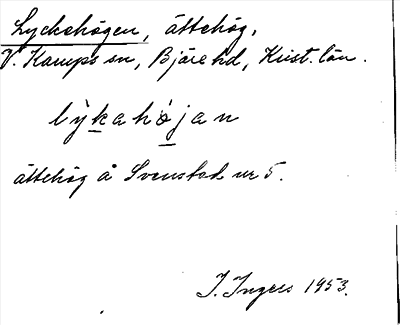 Lyckehögen, ättehög,
V. Karups sn, Bjäre hd, Krist. län.
lỳkahø̀jan
ättehög å Svenstad nr 5.
I. Ingers 1953.